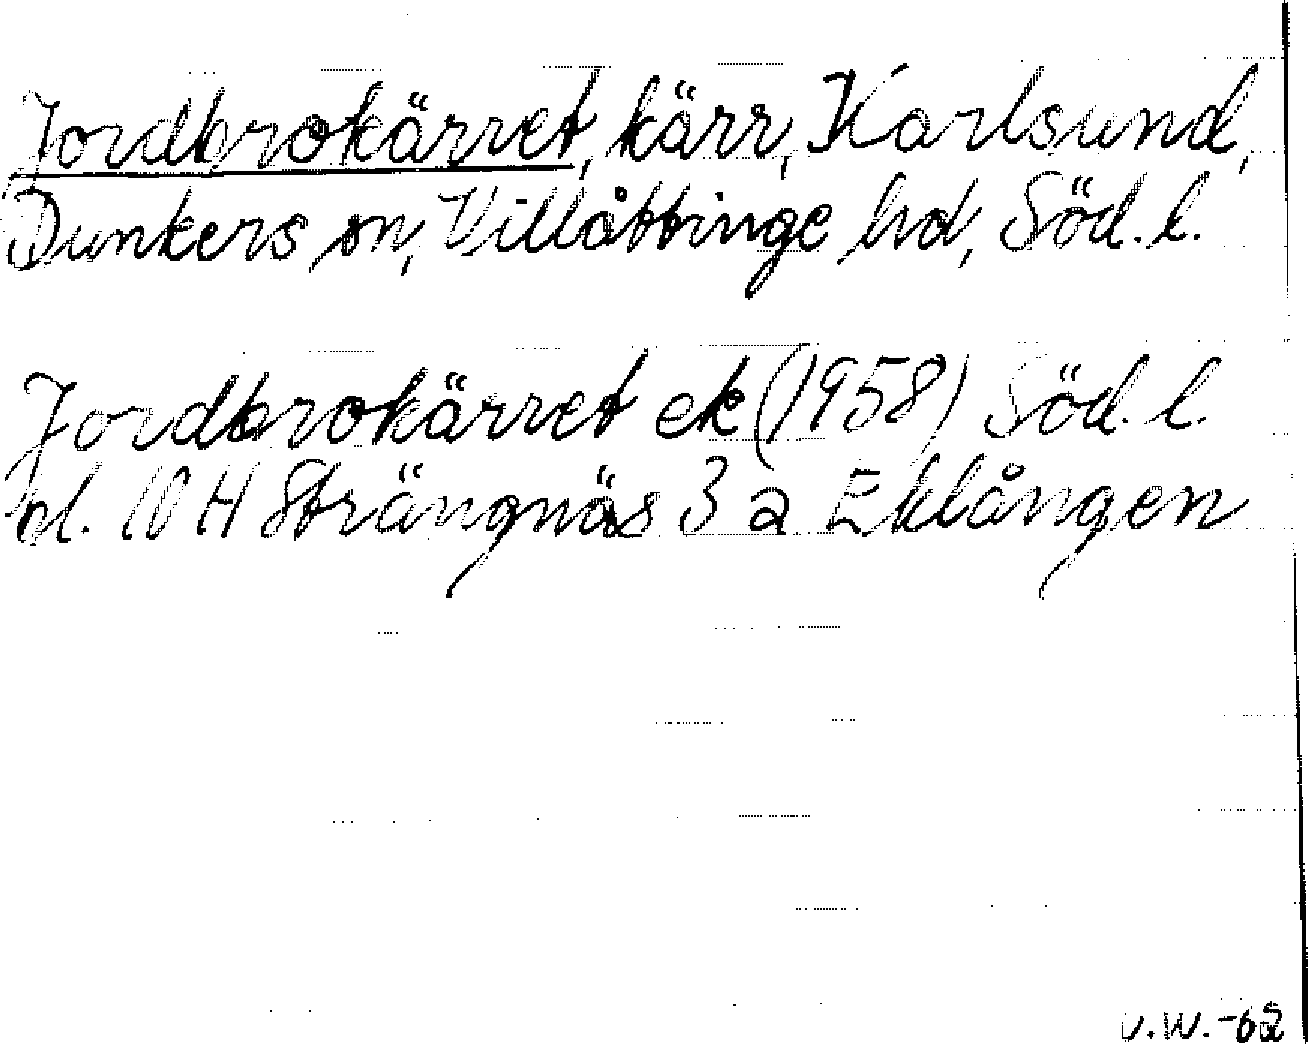 Jordbrokärret, kärr, Karlsund,
Dunkers sn, Villåttinge hd, Söd. l.
Jordbrokärret ek (1958) Söd. l.
bl. 10 H Strängnäs 3 a Eklången
U.W.-62